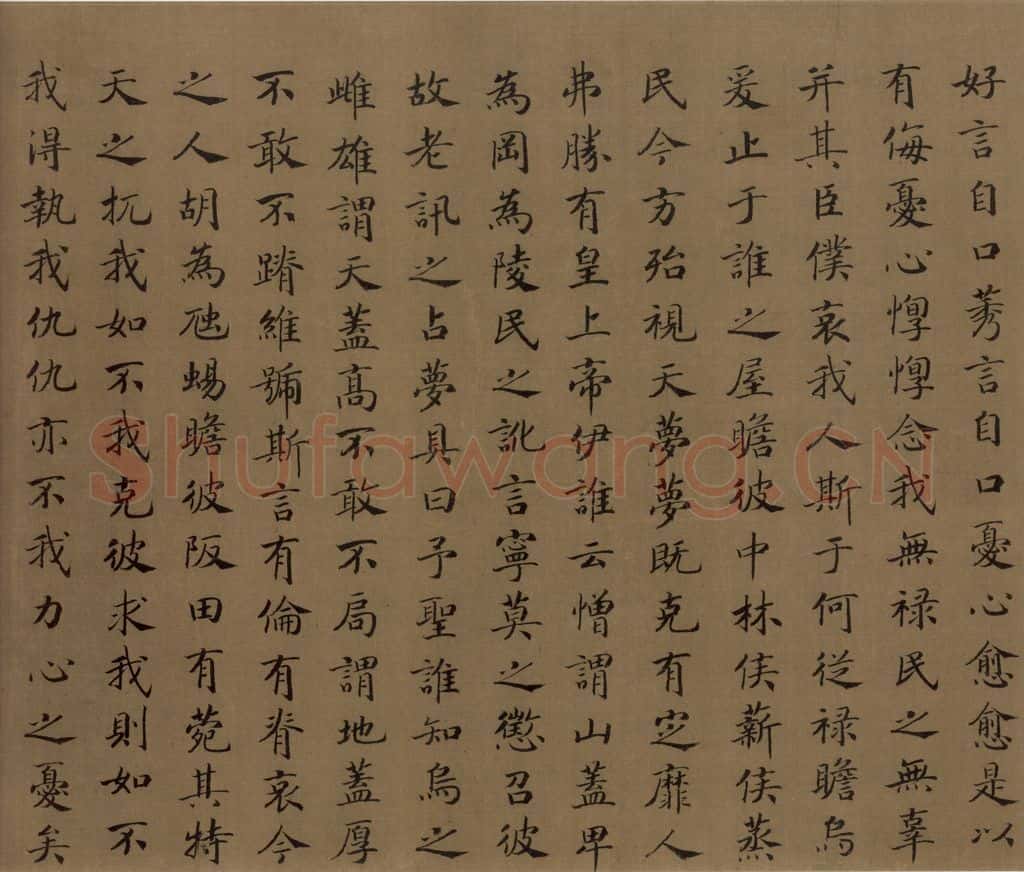 好言自口莠言自口憂心愈愈是以
有侮憂心惸惸念我無禄民之無辜
并其臣僕哀我人斯于何從禄瞻烏
爰止于誰之屋瞻彼中林侯薪侯蒸
民今方殆視天夢夢既克有定靡人
弗勝有皇上帝伊誰云憎謂山蓋卑
為岡為陵民之訛言寧莫之懲召彼
故老訊之占夢具曰予聖誰知烏之
雌雄謂天蓋髙不敢不局謂地蓋厚
不敢不蹐維號斯言有倫有脊哀今
之人胡為虺蜴瞻彼阪田有菀其特
天之扤我如不我克彼求我則如不
我得執我仇仇亦不我力心之憂矣
Shufawang.CN